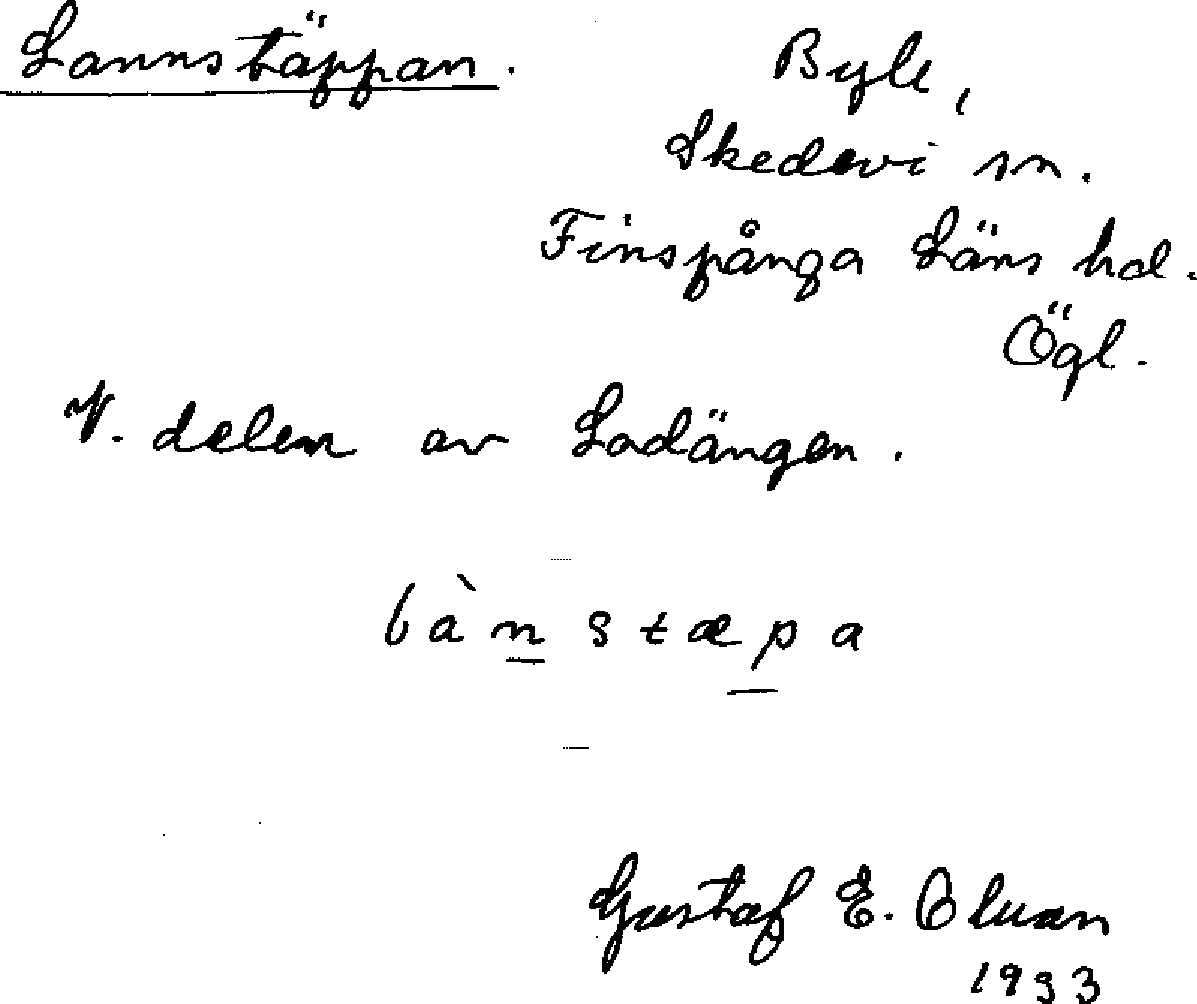 Lannstäppan.
Byle,
Skedevi sn.
Finspånga Läns hd.
Ögl.
V. delen av Ladängen.
làn stæpa
Gustaf E.
1933